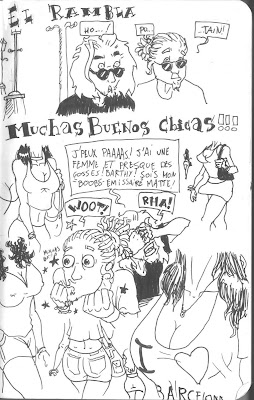 EL RAMBLA
HO...
PU..
..TAIN!
MUCHAS BUENOS CHICAS!!!
J'PEUX PAAAAS! J'AI UNE
FEMME ET PRESQUE DES
GOSSES! BARTHY! SOIS MON
"BOOBS-EMISSAIRE MATTE!
WOO??!
RHA!
BARCELONA